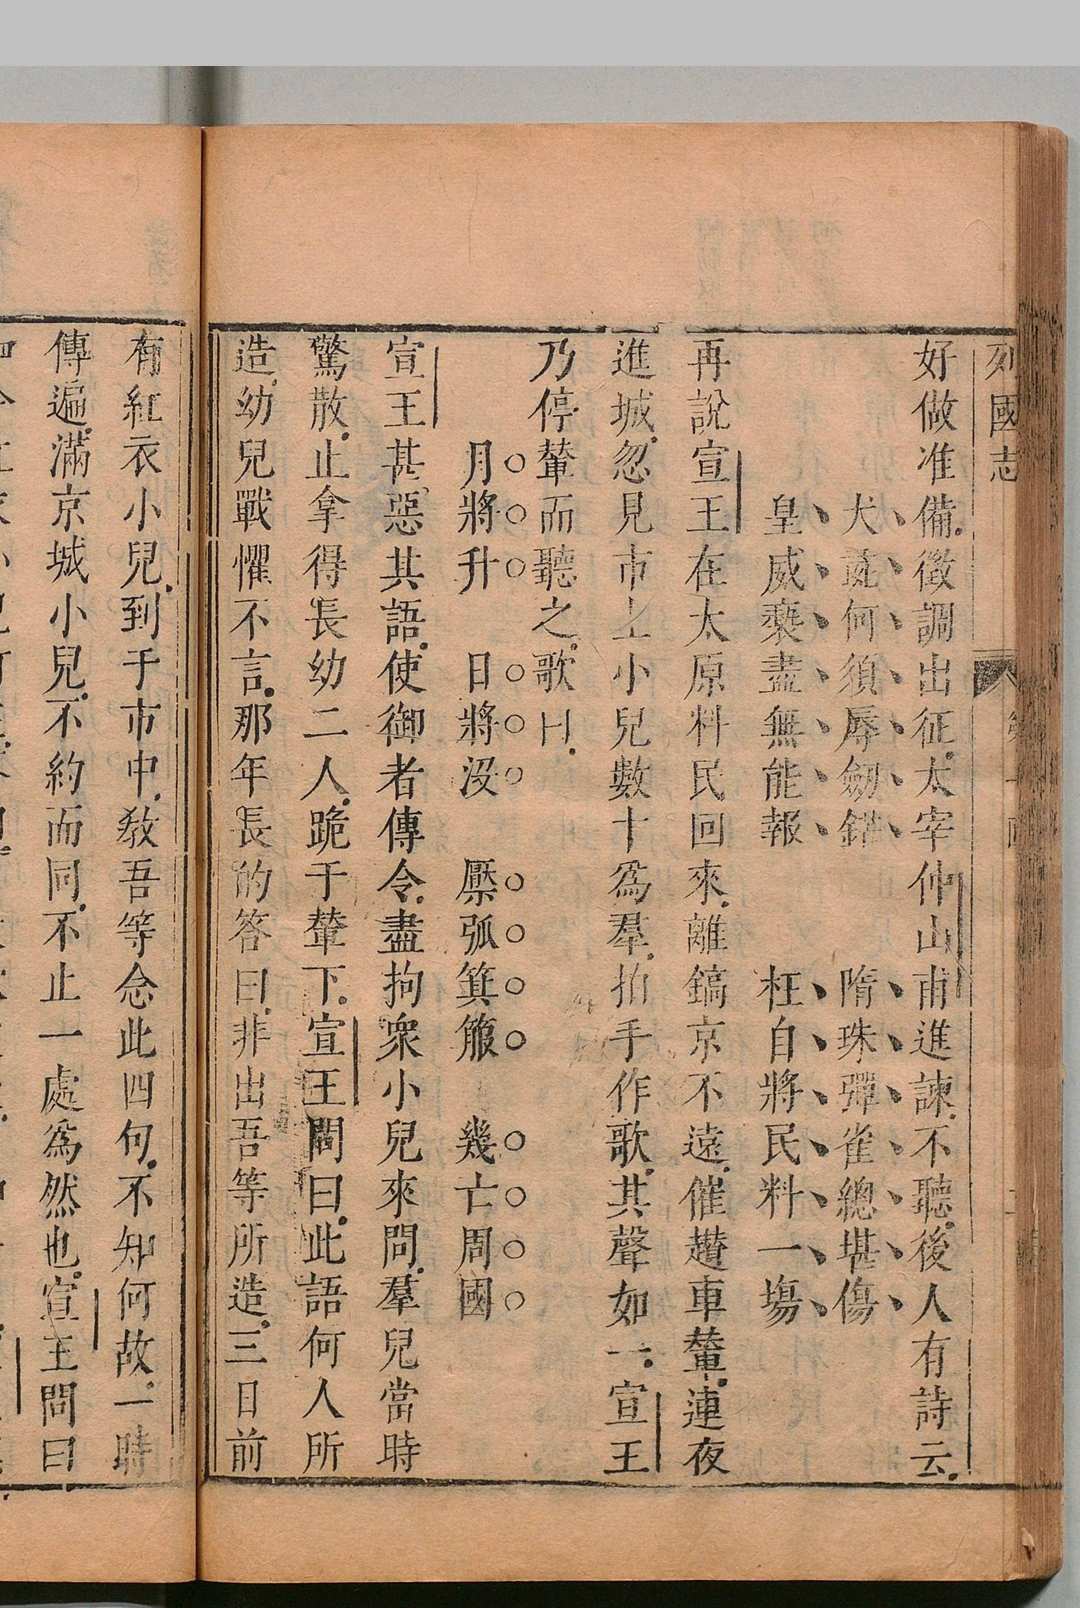 列國志 第一回
好做准備徵調出征太宰仲山甫進諫不聽後人有詩云
犬彘何須辱劒鋩 隋珠彈雀總堪傷
皇威䙝盡無能報 枉自將民料一場
再說宣王在太原料民回來離鎬京不遠催趲車輦連夜
進城忽見市上小兒數十爲羣拍手作歌其聲如一宣王
乃停輦而聽之歌曰
月將升 日將沒 壓弧箕箙 幾亡周國
宣王甚惡其語使御者傳令盡拘衆小兒來問羣兒當時
驚散止拿得長幼二人跪于輦下宣王問曰此語何人所
造幼兒戰懼不言那年長的答曰非出吾等所造三日前
有紅衣小兒到于市中教吾等念此四句不知何故一時
傳遍滿京城小兒不約而同不止一處爲然也宣王問曰